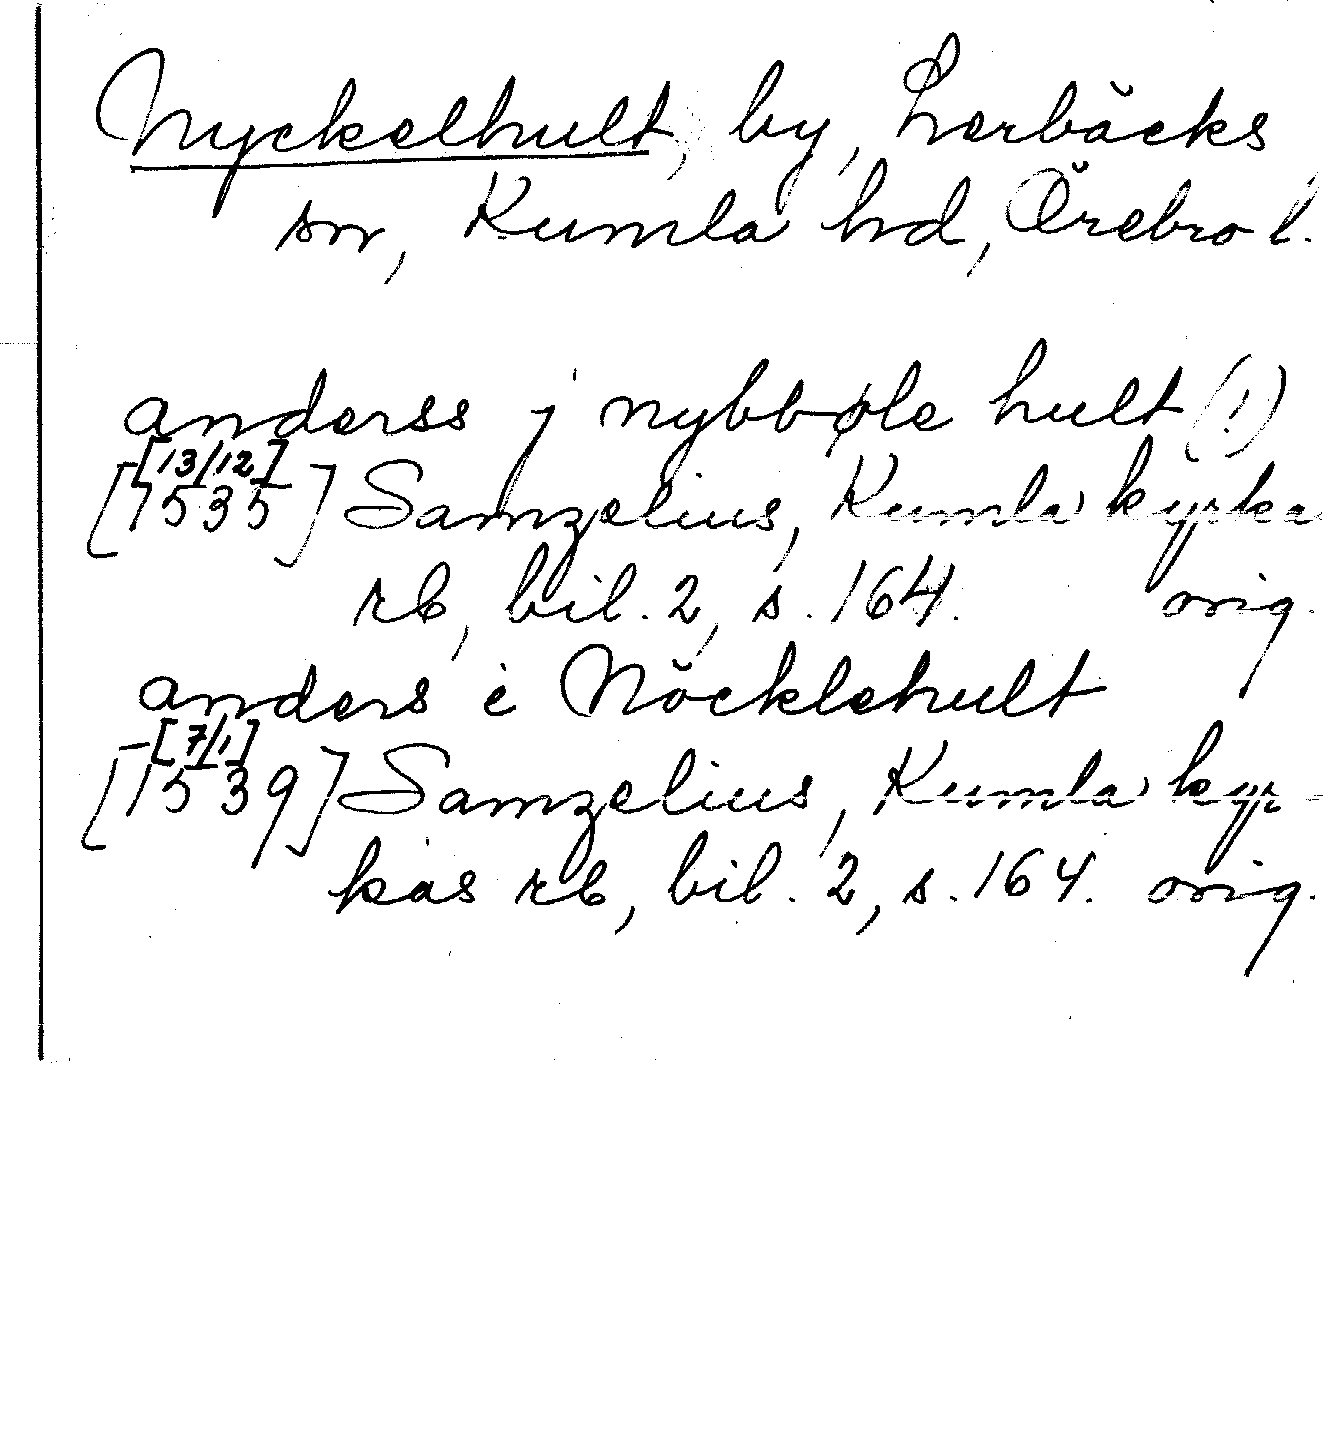 Nyckelhult, by, Lerbäcks
sn, Kumla hd, Örebro l.
anderss j nybbøle hult (!)
[13/12]
[1535] Samzelius, Kumla kyrka
rb, bil. 2, s. 164. orig.
anders i Nöcklehult
[7/1]
[1539] Samzelius, Kumla kyr-
kas rb, bil. 2, s. 164. orig.